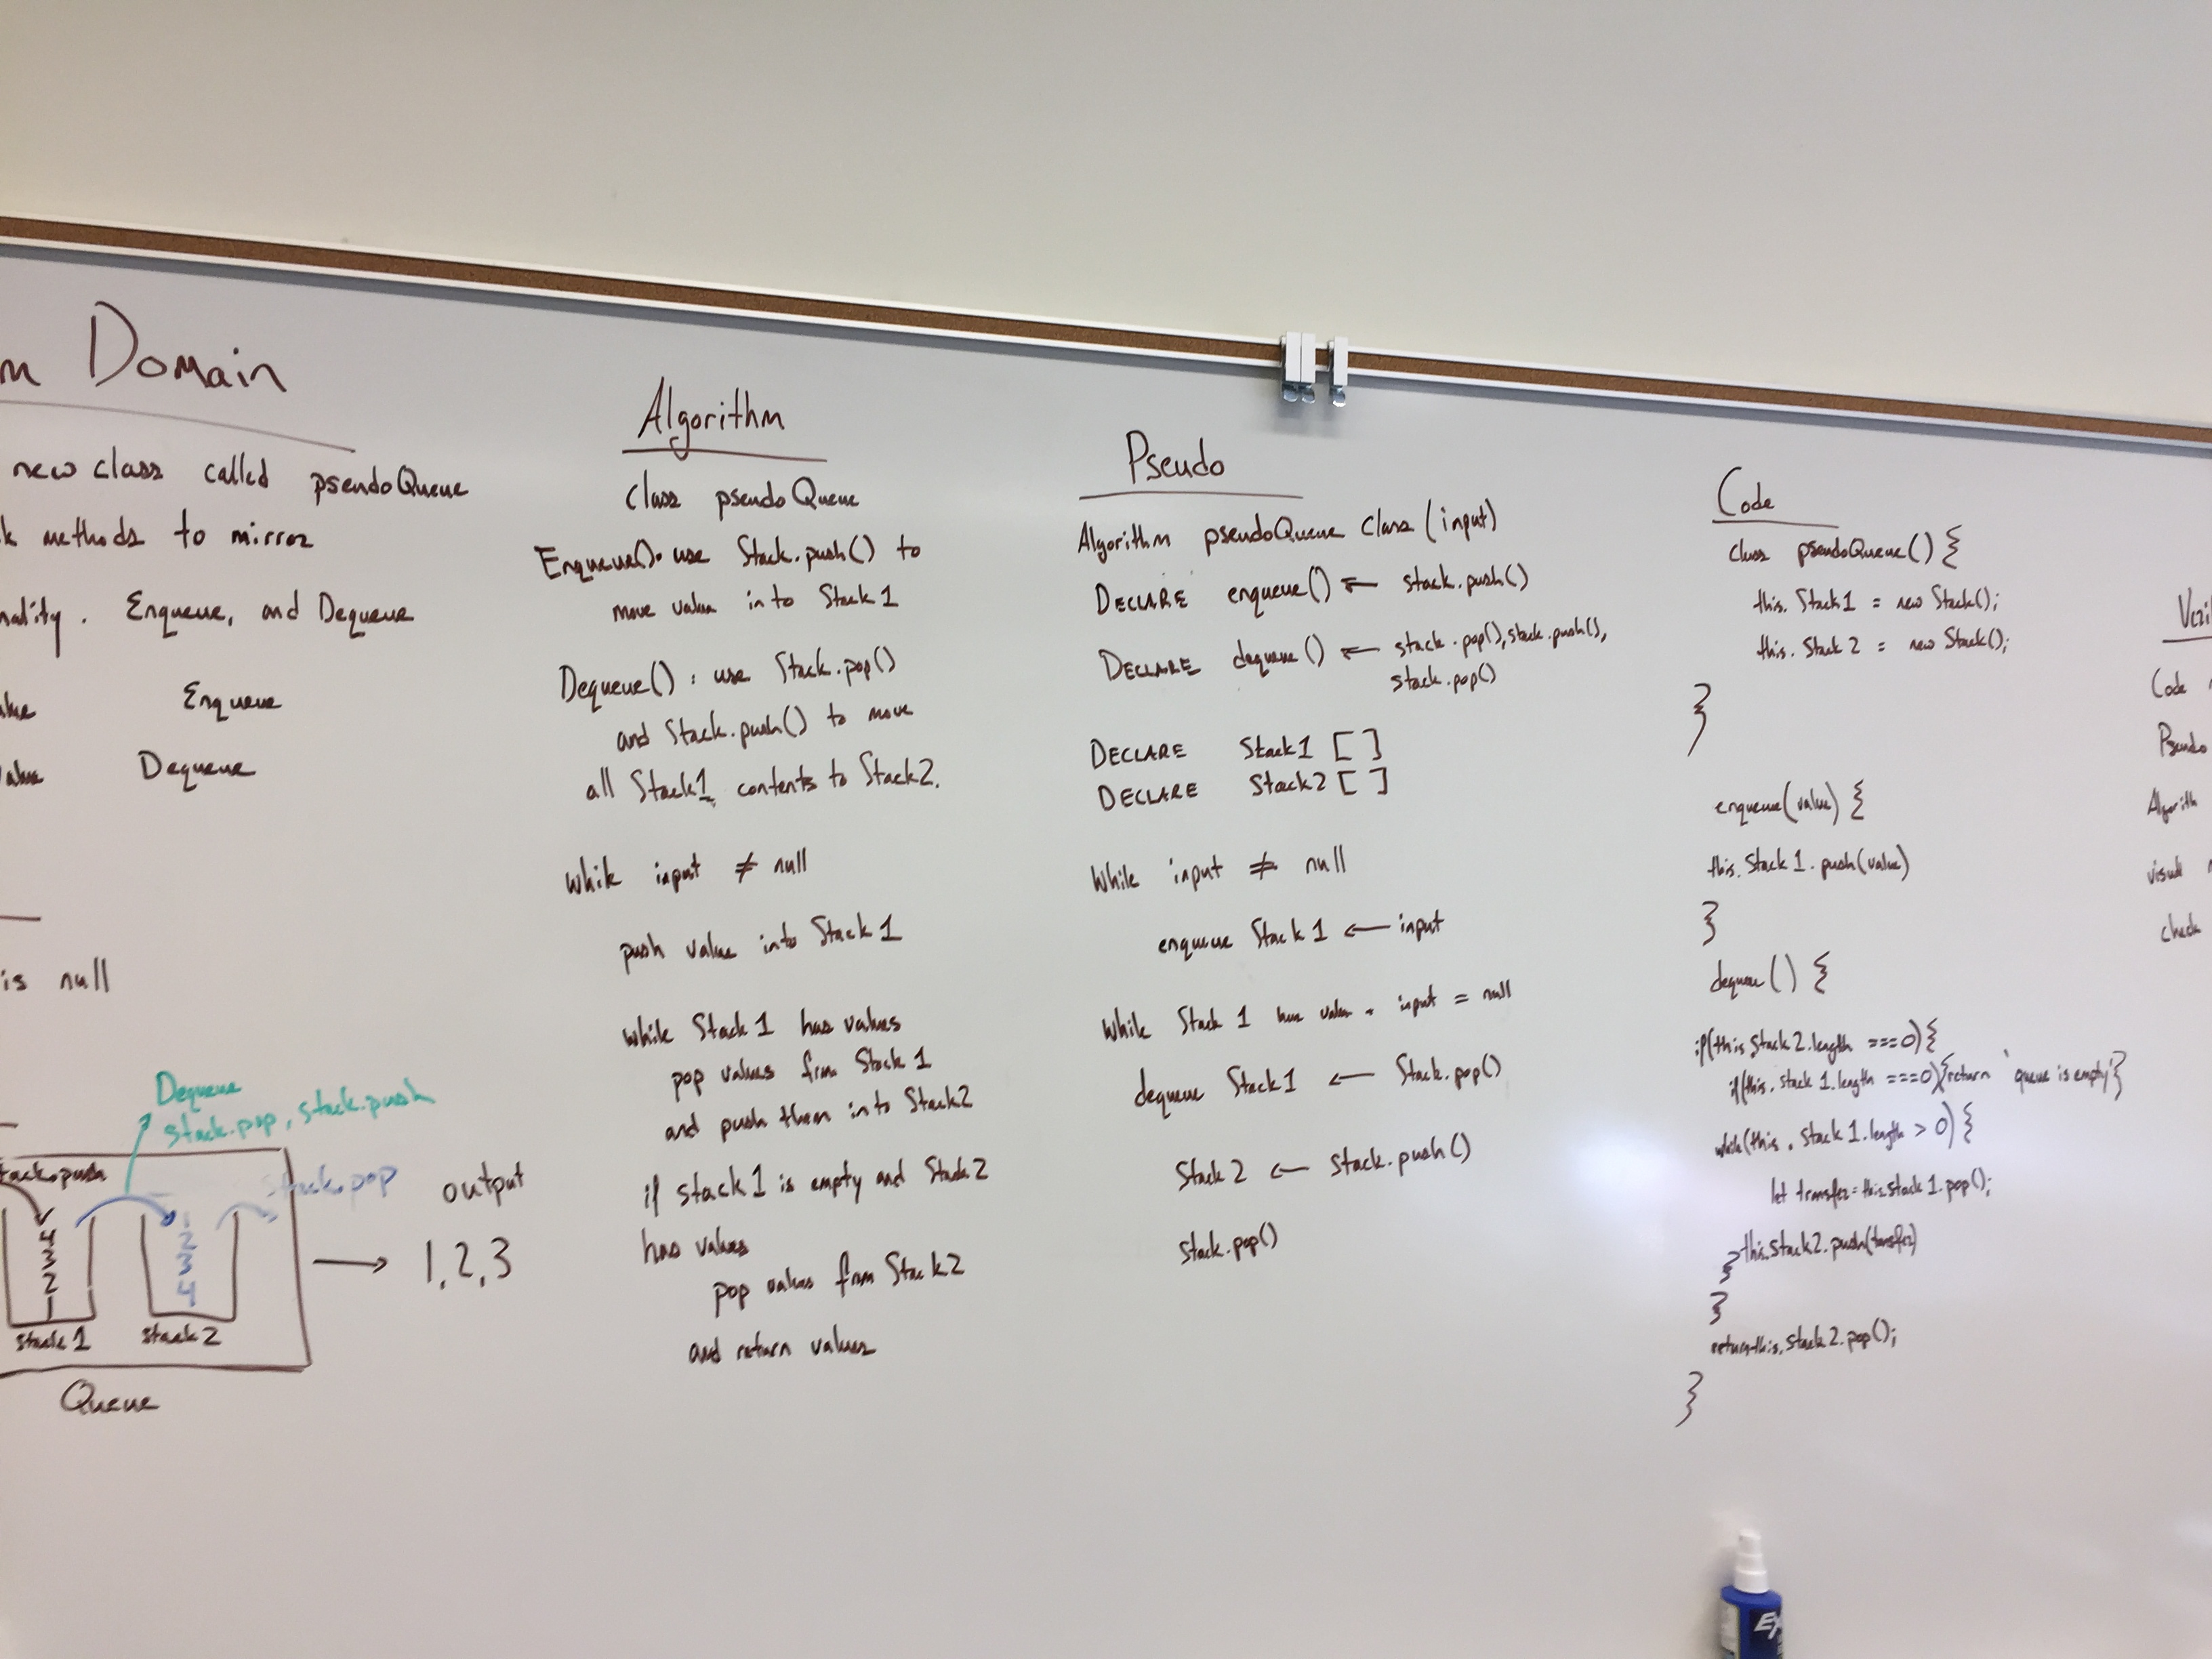 m Domain
new class called pseudoQueue
k methods to mirror
nality. Enqueue, and Dequeue
alue Enqueue
alue Dequeue
is null
Dequeue
stack.pop, stack.push
tack.push
stack.pop
output
4
3
2
1
1
2
3
4
1, 2, 3
stack 1
stack 2
Queue
Algorithm
Class pseudoQueue
Enqueue(): use Stack.push() to
move value into Stack 1
Dequeue() : use Stack.pop()
and Stack.push() to move
all Stack1 contents to Stack2.
While input ≠ null
push value into Stack 1
while Stack 1 has values
pop values from Stack 1
and push them into Stack2
if stack 1 is empty and Stack 2
has values
pop values from Stack 2
and return values
Pseudo
Algorithm pseudoQueue Class (input)
DECLARE enqueue() ← stack.push()
DECLARE dequeue() ← stack.pop(), stack.push(),
stack.pop()
DECLARE Stack1 [ ]
DECLARE Stack2 [ ]
While input ≠ null
enqueue Stack 1 ← input
While Stack 1 has value input = null
dequeue Stack1 ← Stack.pop()
Stack 2 ← Stack.push()
Stack.pop()
Code
Class pseudoQueue() {
this.Stack1 = new Stack();
this.Stack 2 = new Stack();
}
enqueue(value) {
this.Stack 1.push(value)
}
dequeue() {
if(this.Stack 2.length ===0){
if(this.stack 1.length ===0){return 'queue is empty'}
while(this.Stack 1.length > 0) {
let transfer=this.stack 1.pop();
this.stack2.push(transfer)
}
}
return this.stack 2.pop();
}
Veri
Code
Pseudo
Algorith
visual
check
EX